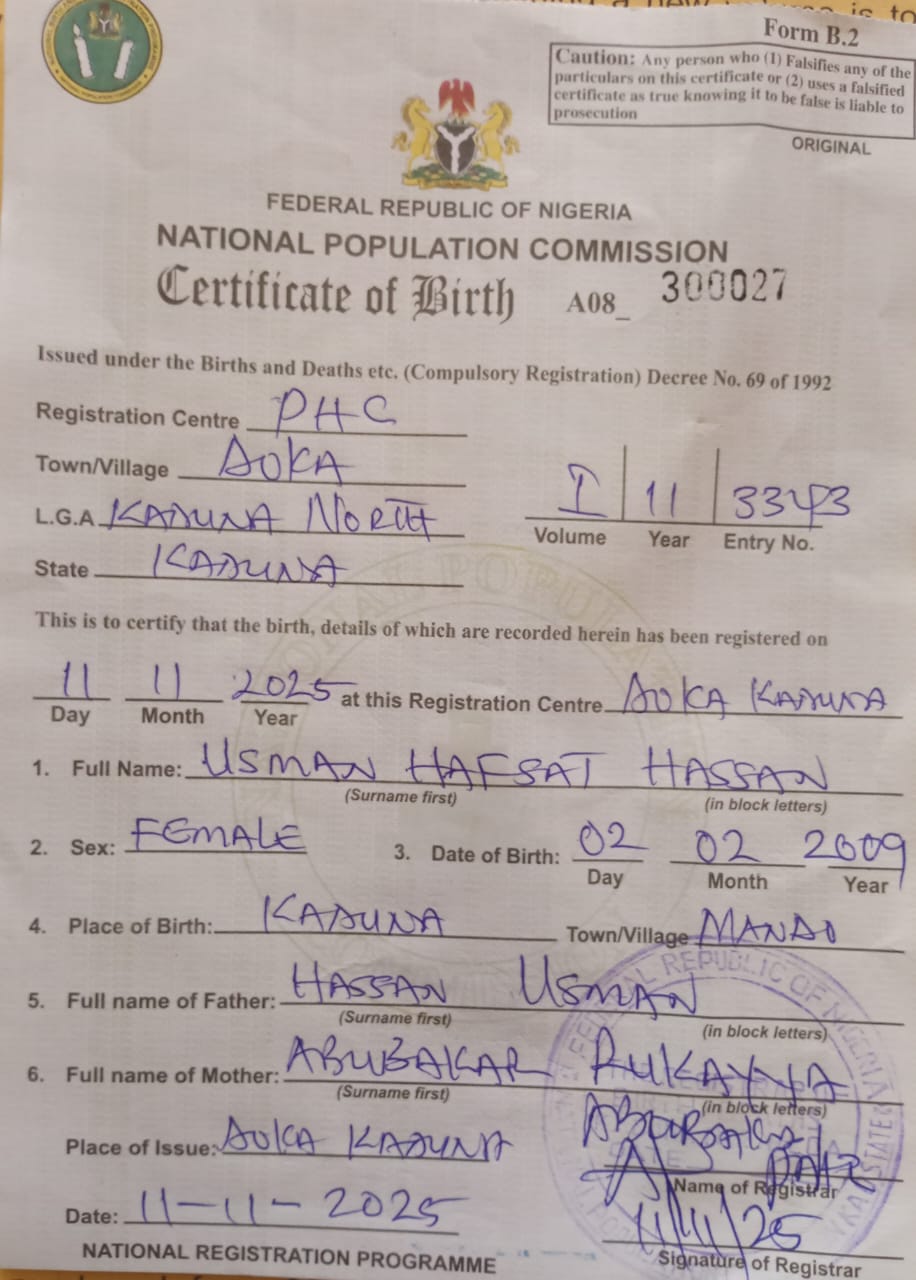 Form B.2
Caution: Any person who (1) Falsifies any of the
particulars on this certificate or (2) uses a falsified
certificate as true knowing it to be false is liable to
prosecution
ORIGINAL
FEDERAL REPUBLIC OF NIGERIA
NATIONAL POPULATION COMMISSION
Certificate of Birth A08_ 300027
Issued under the Births and Deaths etc. (Compulsory Registration) Decree No. 69 of 1992
Registration Centre PHC
Town/Village DOKA
L.G.A KADUNA NORTH
I 11 3343
Volume Year Entry No.
State KADUNA
This is to certify that the birth, details of which are recorded herein has been registered on
11 11 2025 at this Registration Centre DOKA KADUNA
Day Month Year
1. Full Name: USMAN HAFSAT HASSAN
(Surname first) (in block letters)
2. Sex: FEMALE 3. Date of Birth: 02 02 2009
Day Month Year
4. Place of Birth: KADUNA Town/Village MANDO
5. Full name of Father: HASSAN USMAN
(Surname first) (in block letters)
6. Full name of Mother: ABUBAKAR RUKAYYA
(Surname first) (in block letters)
Place of Issue: DOKA KADUNA
Name of Registrar
Date: 11-11-2025 11/11/25
Signature of Registrar
NATIONAL REGISTRATION PROGRAMME
FEDERAL REPUBLIC OF NIGERIA